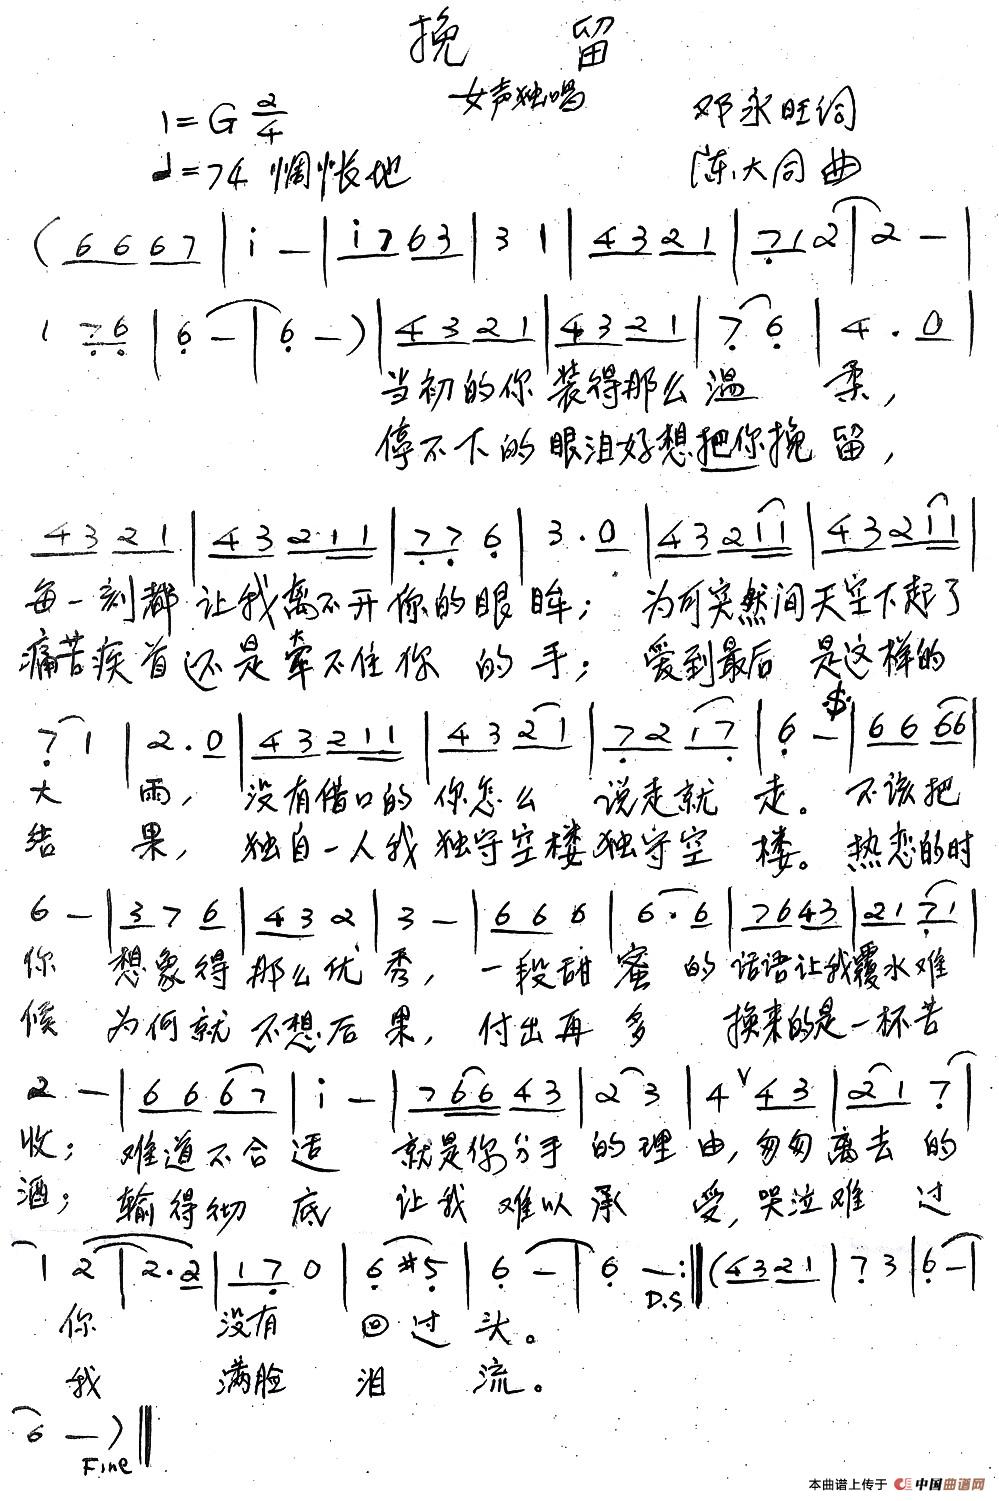 挽 留
女声独唱
1=G 2/4
邓永旺词
♩=74 惆怅地
陈大同曲
(6 6 6 7 | i — | i 7 6 3 | 3 1 | 4 3 2 1 | 7 1 2 | 2 — |
1 7 6 | 6 — | 6 — ) | 4 3 2 1 | 4 3 2 1 | 7 6 | 4 . 0 |
当初的你 装得那么温 柔，
停不下的眼泪好想把你挽 留，
4 3 2 1 | 4 3 2 · 1 1 | 7 7 6 | 3 . 0 | 4 3 2 1 1 | 4 3 2 1 1 |
每一刻都让我离不开你的眼眸； 为何突然间天空下起了
痛苦疾首还是牵不住你 的手； 爱到最后 是这样的
7 1 | 2 . 0 | 4 3 2 1 1 | 4 3 2 1 | 7 2 1 7 | 6 — | 6 6 6 6 |
大 雨， 没有借口的 你怎么 说走就 走。 不该把
结 果， 独自一人我独守空楼独守空 楼。热恋的时
6 — | 3 7 6 | 4 3 2 | 3 — | 6 6 6 | 6 . 6 | 7 6 4 3 | 2 1 7 1 |
你 想象得 那么优 秀， 一段甜 蜜 的话语让我覆水难
候 为何就 不想后 果， 付出再 多 换来的是一杯苦
2 — | 6 6 6 7 | i — | 7 6 6 4 3 | 2 3 | 4 ∨ 4 3 | 2 1 7 |
收； 难道不合 适 就是你分手 的理 由，匆匆离去 的
酒； 输得彻 底 让我 难以承 受，哭泣难 过
1 2 | 2 . 2 | 1 7 0 | 6 #5 | 6 — | 6 — :‖ (4 3 2 1 | 7 3 | 6 — |
D.S
你 没有 回过 头。
我 满脸 泪 流。
6 — ) ‖
Fine
本曲谱上传于 中国曲谱网